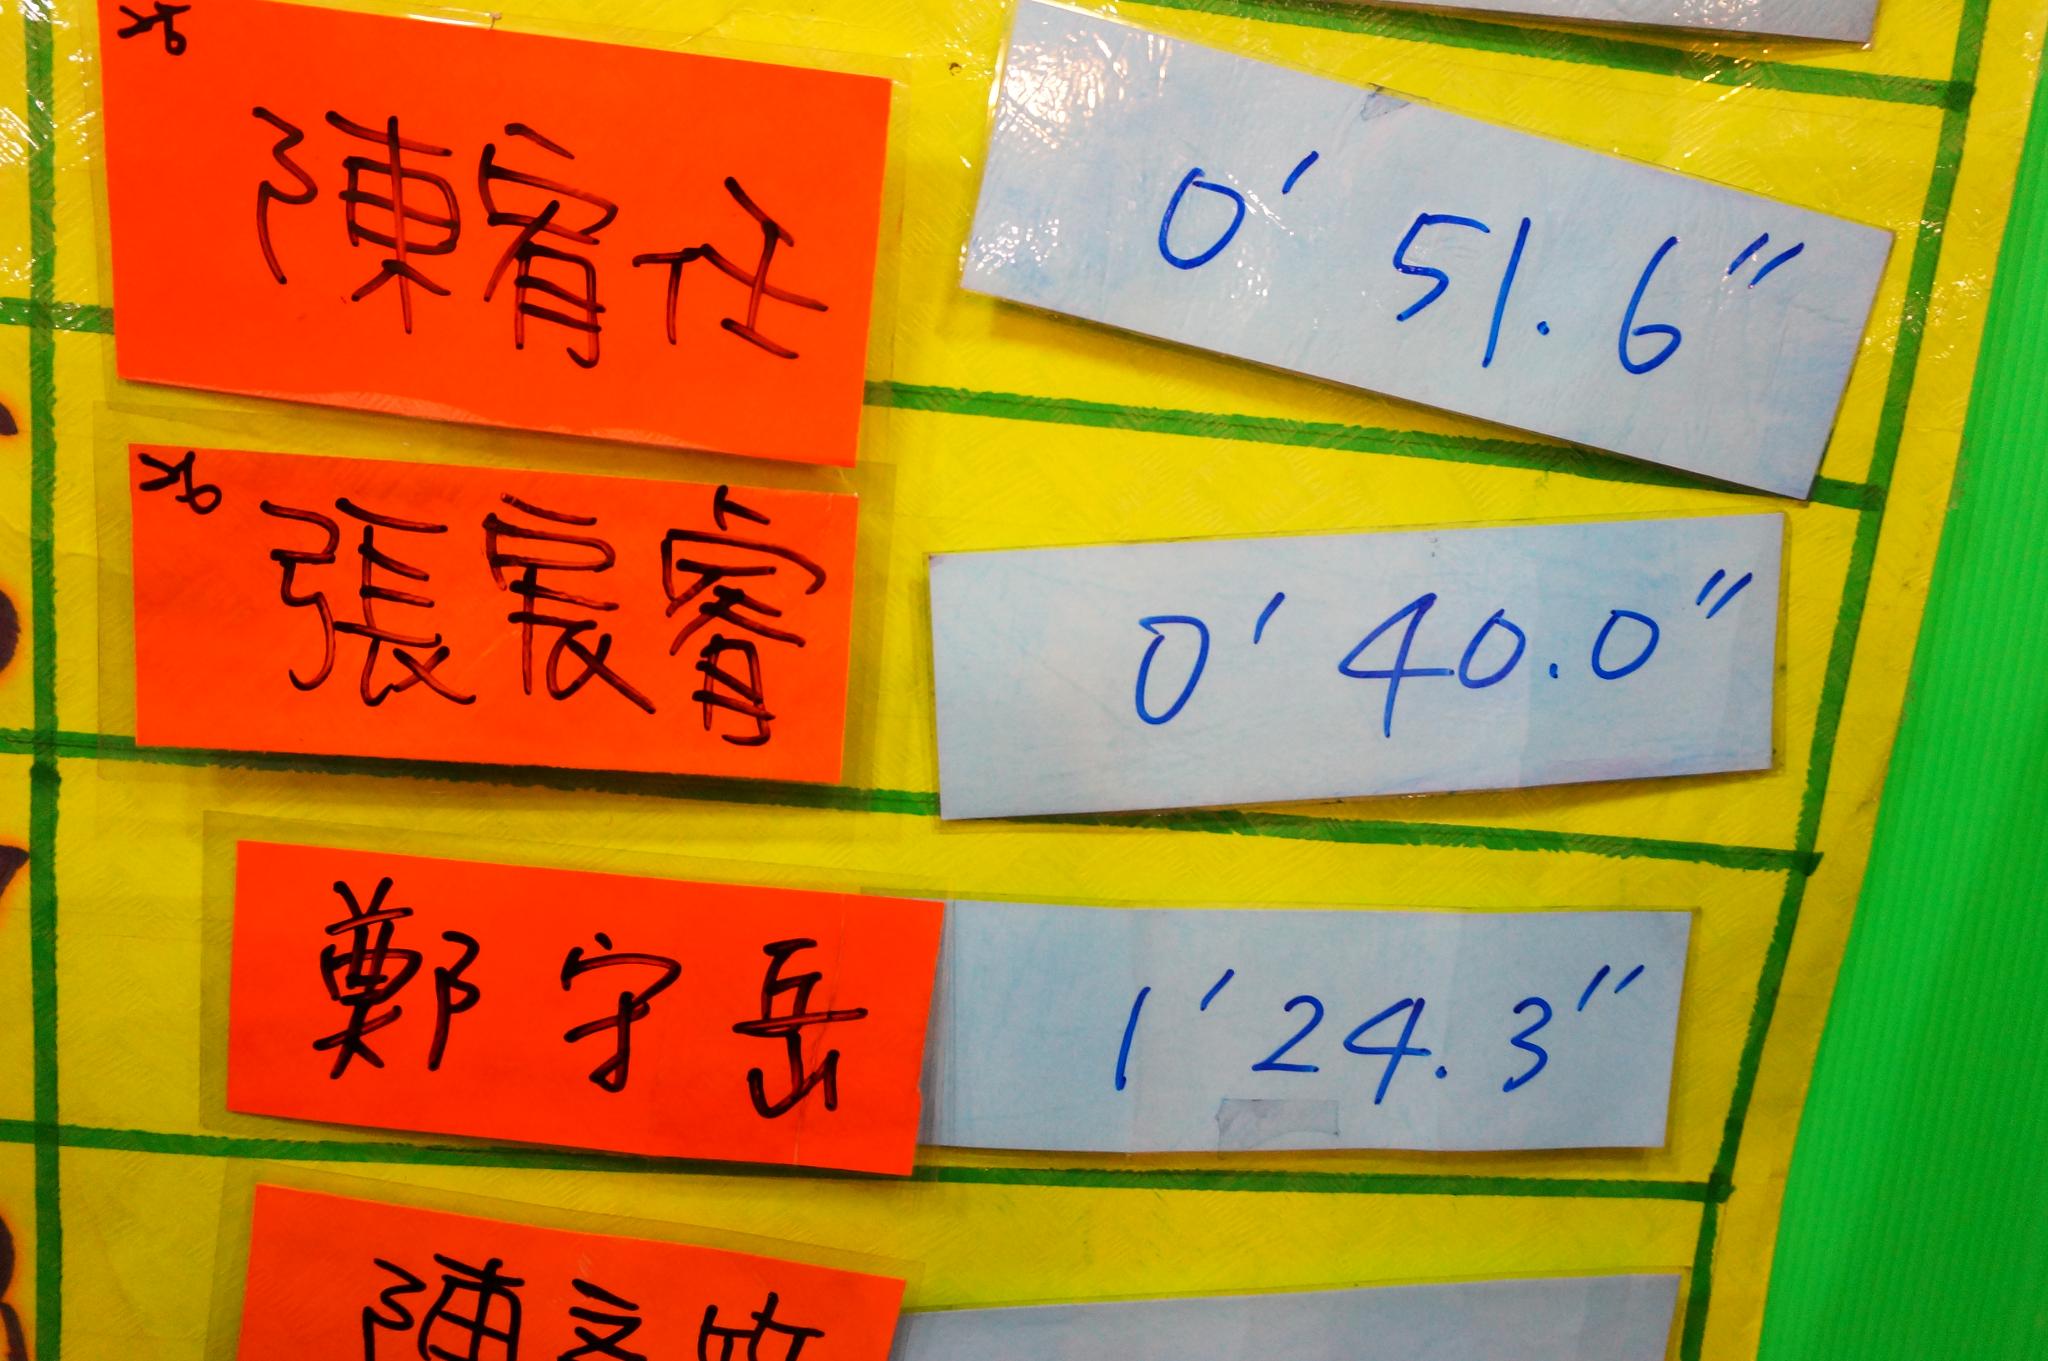 陳宥任 0' 51.6"
張宸睿 0' 40.0"
鄭守岳 1' 24.3"
陳文